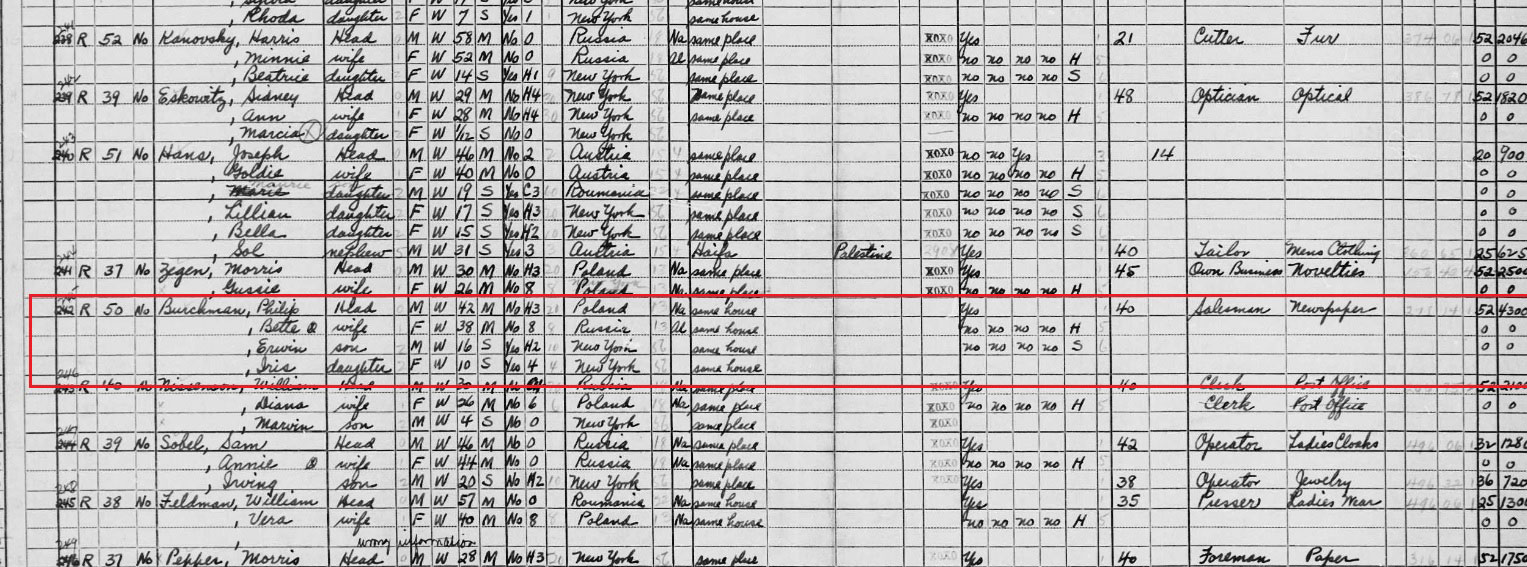 Rhoda daughter F W 7 S Yes 1 New York same house
R 52 No Kanovsky, Harris Head M W 58 M No 0 Russia Na same place Yes 21 Cutter Fur 52 2046
, Minnie wife F W 52 M No 0 Russia Al same place no no no no H 0 0
, Beatrice daughter F W 14 S Yes H1 New York same place no no no no S 0 0
239 R 39 No Eskowitz, Sidney Head M W 29 M No H4 New York same place Yes 48 Optician Optical 52 1820
, Ann wife F W 28 M No H4 New York same place no no no no H 0 0
, Marcia daughter F W 1/12 S No 0 New York
240 R 51 No Hans, Joseph Head M W 46 M No 2 Austria same place XOXO no no Yes 14 20 900
, Goldie wife F W 40 M No 0 Austria same place XOXO no no no no H 0 0
, Marie daughter M W 19 S Yes C3 Roumania same place XOXO no no no no S 0 0
, Lillian daughter F W 17 S Yes H3 New York same place XOXO no no no no S 0 0
, Bella daughter F W 15 S Yes H2 New York same place XOXO no no no no S 0 0
, Sol nephew M W 31 S Yes 3 Austria Haifa Palestine Yes 40 Tailor Mens Clothing 25 625
241 R 37 No Zegen, Morris Head M W 30 M No H3 Poland Na same place XOXO Yes 45 Own Business Novelties 52 2500
, Gussie wife F W 26 M No 8 Poland Na same place XOXO no no no no H 0 0
242 R 50 No Burchman, Philip Head M W 42 M No H3 Poland Na same house Yes 40 Salesman Newspaper 52 4300
, Bette wife F W 38 M No 8 Russia Al same house no no no no H 0 0
, Erwin son M W 16 S Yes H2 New York same house no no no no S 0 0
246 , Iris daughter F W 10 S Yes 4 New York same house 0 0
243 R 40 No Nissenson, William Head M W 30 M No Russia Na same place XOXO Yes 40 Clerk Post Office 52 2100
, Diana wife F W 26 M No 6 Poland Na same place XOXO no no no no H Clerk Post Office 0 0
, Marvin son M W 4 S No 0 New York same place
244 R 39 No Sobel, Sam Head M W 46 M No 0 Russia Na same place XOXO Yes 42 Operator Ladies Cloaks 32 1280
, Annie wife F W 44 M No 0 Russia Na same place XOXO no no no no H 0 0
, Irving son M W 20 S No H2 New York same place XOXO Yes 38 Operator Jewelry 36 720
245 R 38 No Feldman, William Head M W 57 M No 0 Roumania Na same house Yes 35 Presser Ladies Wear 25 1300
, Vera wife F W 40 M No 8 Poland Na same house no no no no H 0 0
249 , wrong information
R 37 No Pepper, Morris Head M W 28 M No H3 New York same place XOXO Yes 40 Foreman Paper 52 1750